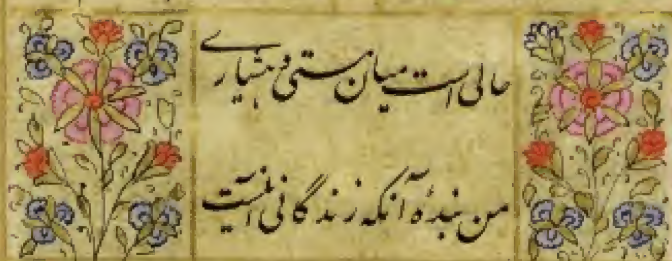 حالی است میان مستی و هشیاری
من بندهٔ آنکه زندگانی آنست